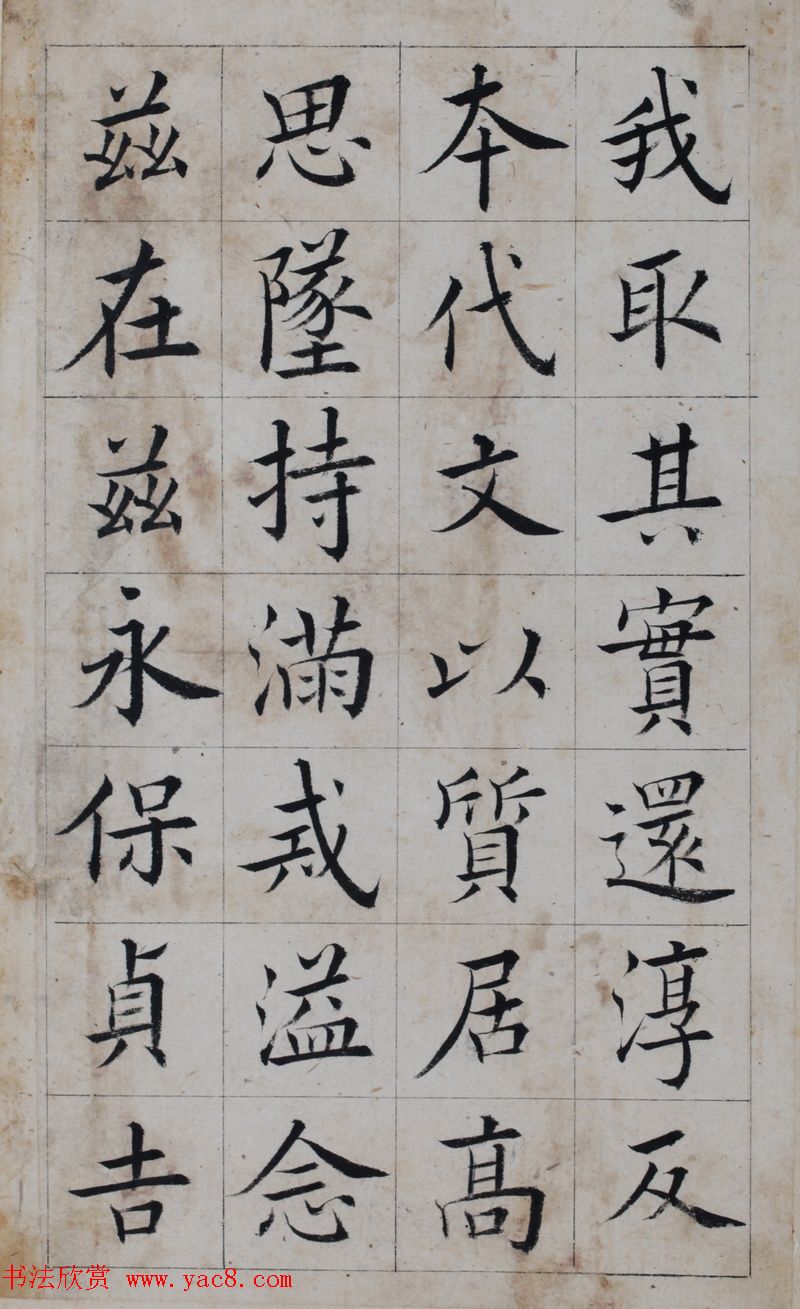 我取其實還淳反
本代文以質居高
思墜持滿戒溢念
茲在茲永保貞吉
书法欣赏 www.yac8.com